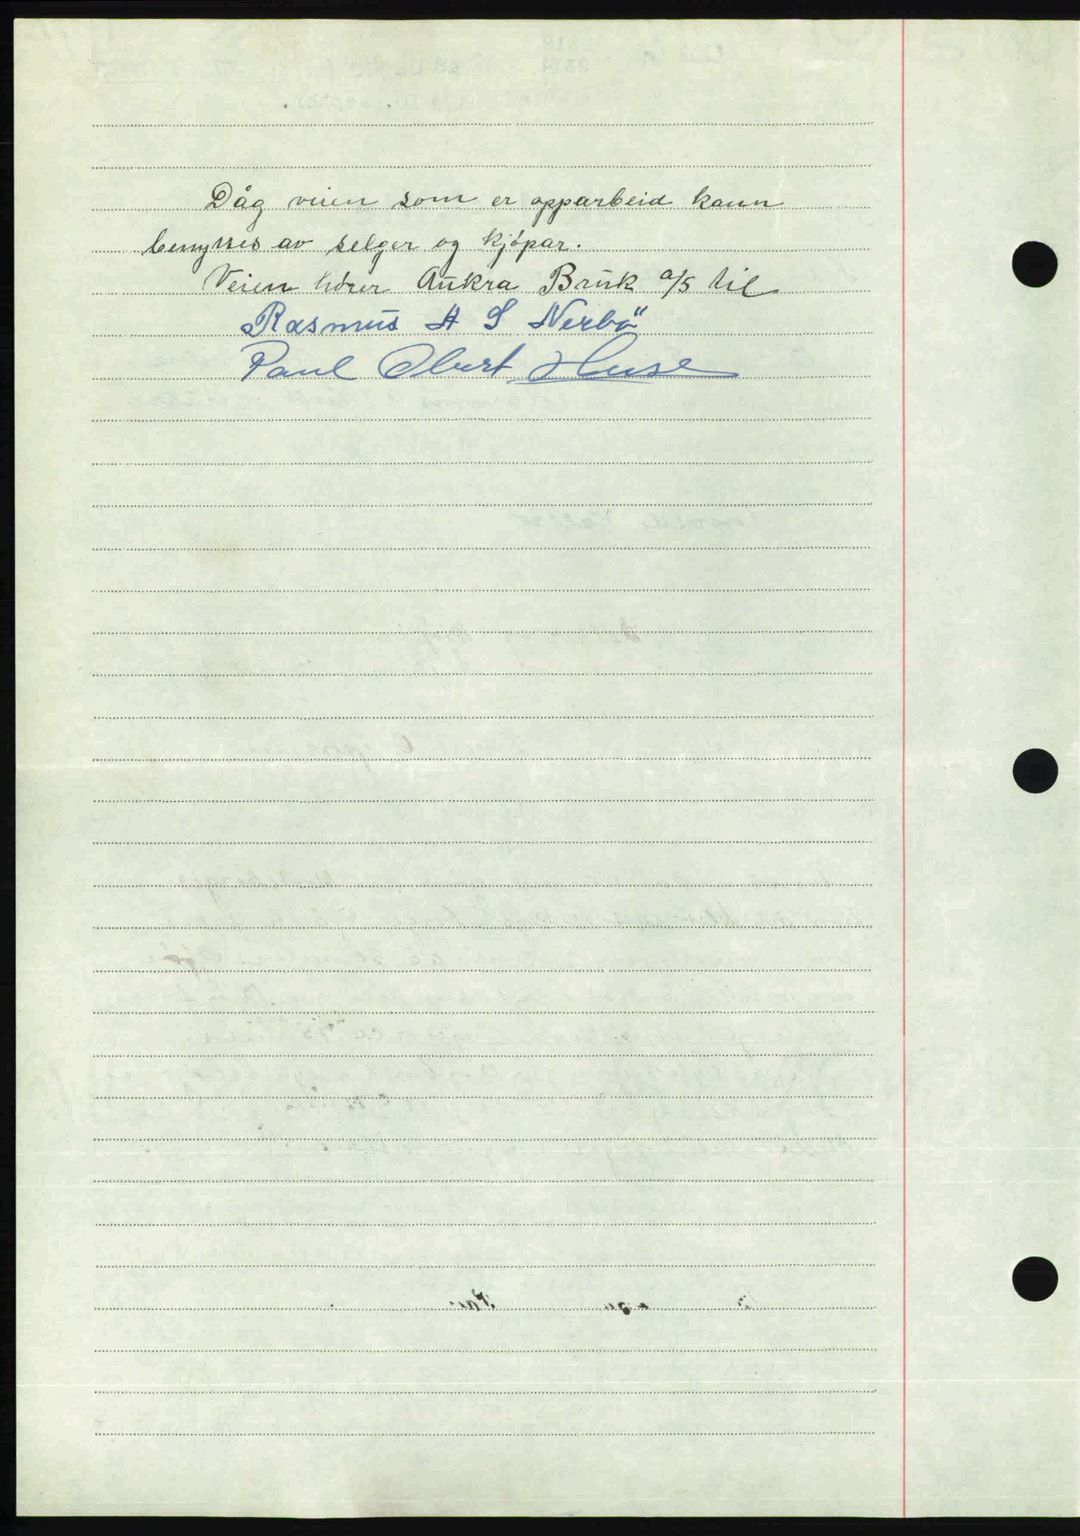 Dåg veien som er opparbeid kann
benyttes av selger og kjøpar.
Veien hører Aukra Bruk a/s til
Rasmus A S Nerbø
Paul Obert Huse